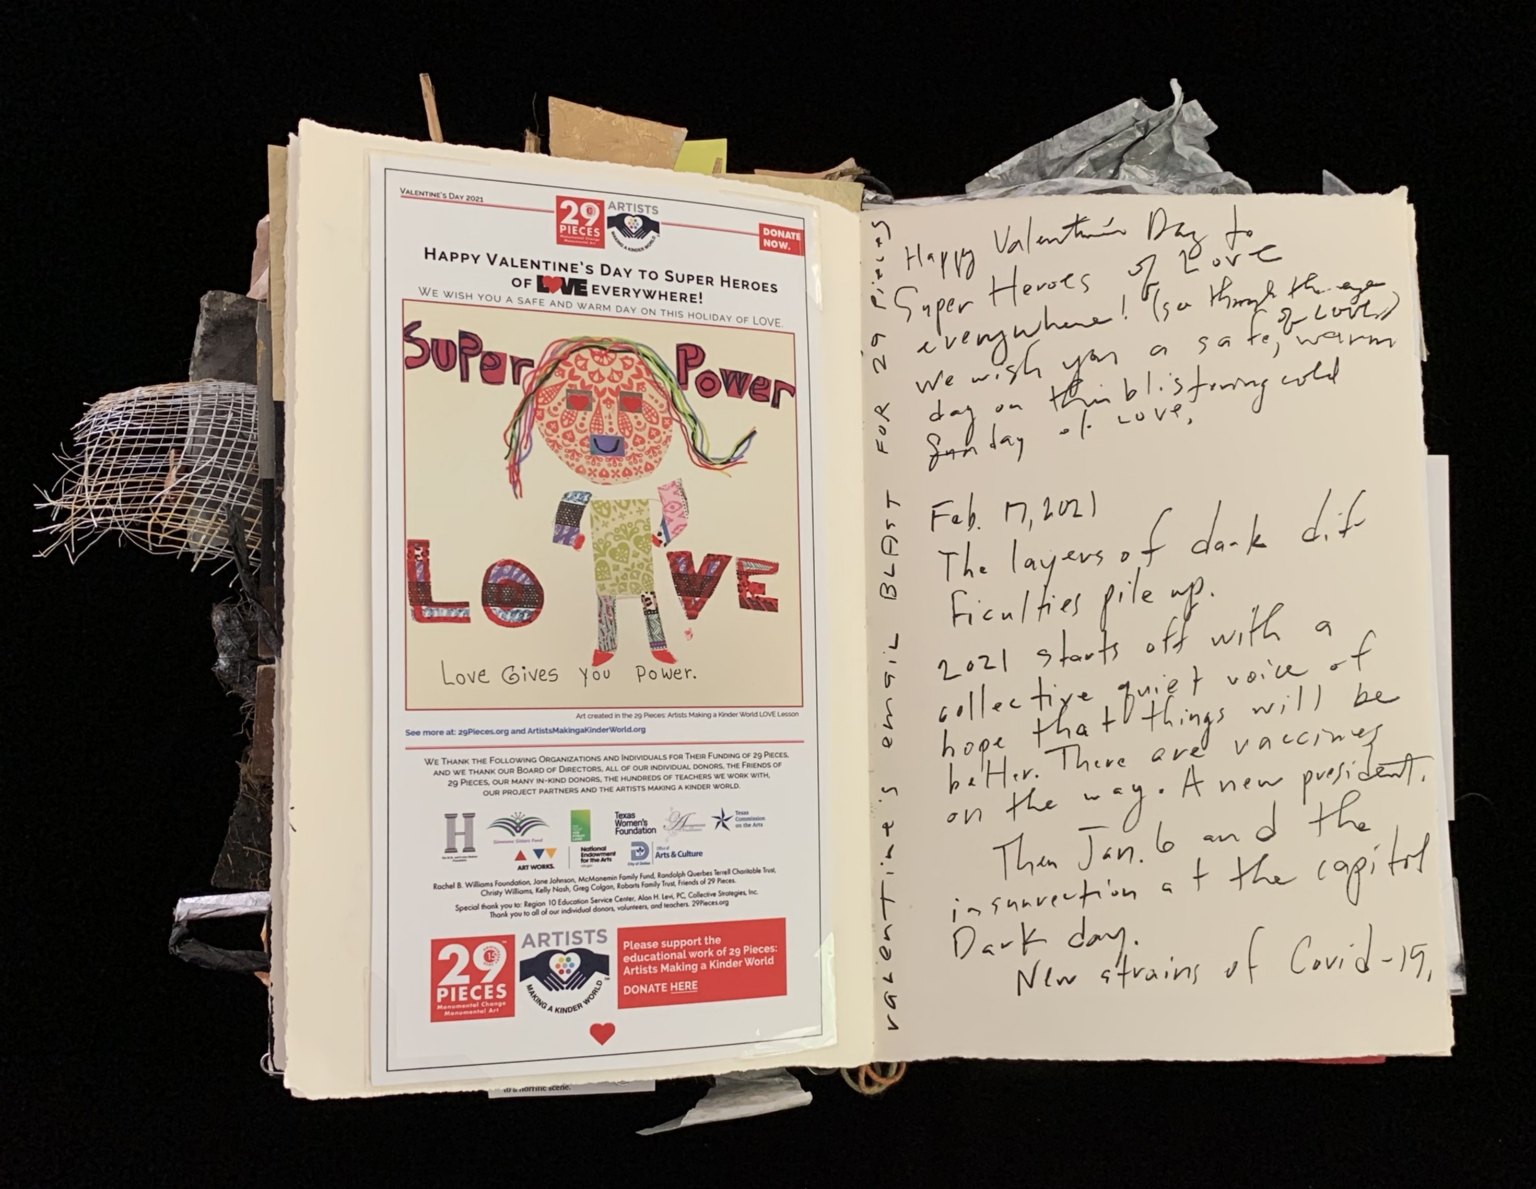 VALENTINE'S DAY 2021
29
PIECES
Monumental Change
Monumental Art
ARTISTS
MAKING A KINDER WORLD
DONATE
NOW.
HAPPY VALENTINE'S DAY TO SUPER HEROES
OF LOVE EVERYWHERE!
WE WISH YOU A SAFE AND WARM DAY ON THIS HOLIDAY OF LOVE.
Super Power
LOVE
Love Gives you Power.
Art created in the 29 Pieces: Artists Making a Kinder World LOVE Lesson
See more at: 29Pieces.org and ArtistsMakingaKinderWorld.org
WE THANK THE FOLLOWING ORGANIZATIONS AND INDIVIDUALS FOR THEIR FUNDING OF 29 PIECES,
AND WE THANK OUR BOARD OF DIRECTORS, ALL OF OUR INDIVIDUAL DONORS, THE FRIENDS OF
29 PIECES, OUR MANY IN-KIND DONORS, THE HUNDREDS OF TEACHERS WE WORK WITH,
OUR PROJECT PARTNERS AND THE ARTISTS MAKING A KINDER WORLD.
H
Simmons Sisters Fund
Texas
Women's
Foundation
Texas
Commission
on the Arts
ART WORKS.
National
Endowment
for the Arts
City of Dallas
Office of
Arts & Culture
Rachel B. Williams Foundation, Jane Johnson, McManemin Family Fund, Randolph Querbes Terrell Charitable Trust,
Christy Williams, Kelly Nash, Greg Colgan, Robarts Family Trust, Friends of 29 Pieces.
Special thank you to: Region 10 Education Service Center, Alan H. Levi, PC, Collective Strategies, Inc.
Thank you to all of our individual donors, volunteers, and teachers. 29Pieces.org
29
PIECES
Monumental Change
Monumental Art
ARTISTS
MAKING A KINDER WORLD
Please support the
educational work of 29 Pieces:
Artists Making a Kinder World
DONATE HERE
to a horrific scene.
valentine's email BLAST FOR 29 Pieces
Happy Valentine's Day to
Super Heroes of Love
everywhere! (so through the eyes
of Love)
we wish you a safe, warm
day on this blistering cold
Sunday of Love.
Feb. 17, 2021
The layers of dark dif-
ficulties pile up.
2021 starts off with a
collective quiet voice of
hope that things will be
better. There are vaccines
on the way. A new president.
Then Jan. 6 and the
insurrection at the capitol
Dark day.
New strains of Covid-19,